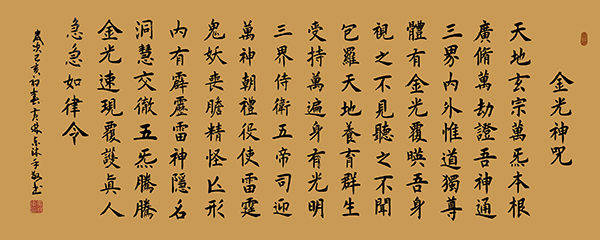 金光神咒
天地玄宗萬炁本根
廣脩萬劫證吾神通
三界內外惟道獨尊
體有金光覆暎吾身
視之不見聽之不聞
包羅天地養育群生
受持萬遍身有光明
三界侍衛五帝司迎
萬神朝禮役使雷霆
鬼妖喪膽精怪亾形
內有霹靂雷神隱名
洞慧交徹五炁騰騰
金光速現覆護眞人
急急如律令
歲次己亥初春